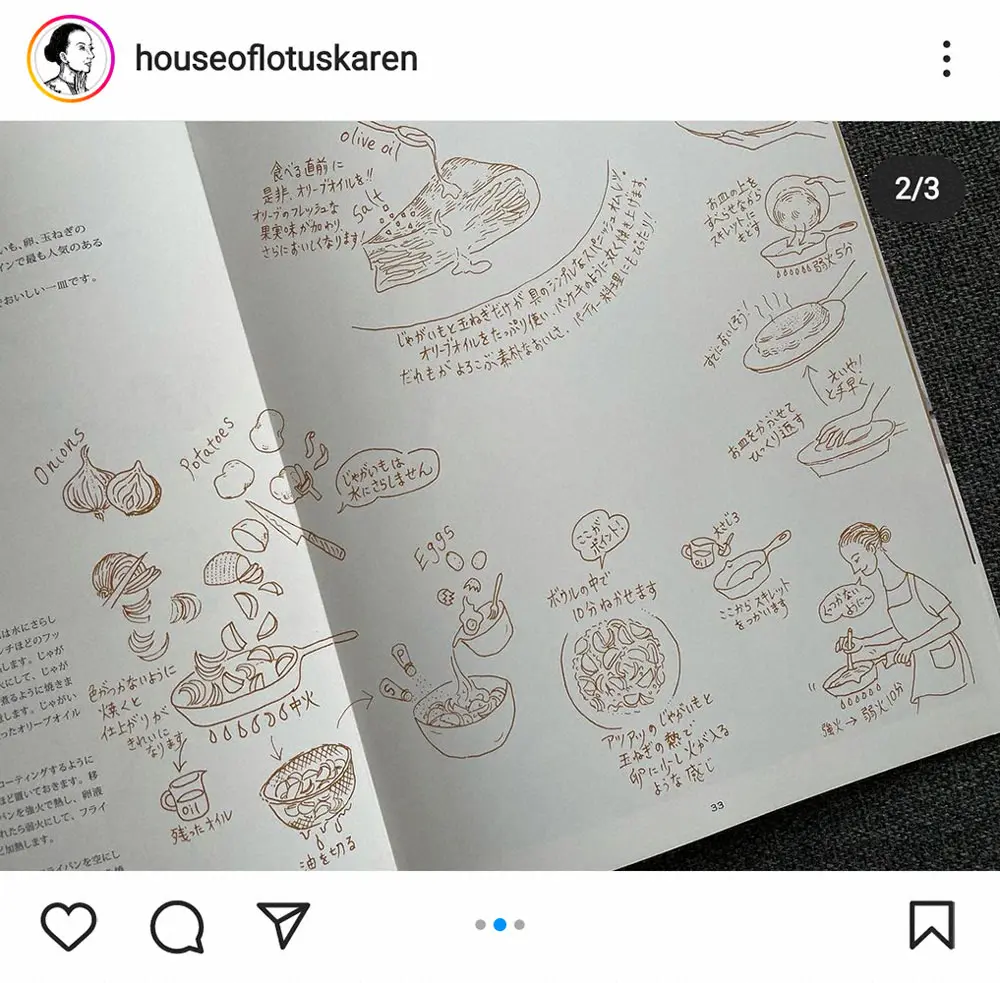 houseoflotuskaren
2/3
olive oil
食べる直前に
是非、オリーブオイルを!!
オリーブのフレッシュな
果実味が加わり
さらにおいしくなります!
Salt
じゃがいもと玉ねぎだけが具のシンプルなスパニッシュオムレツ。
オリーブオイルをたっぷり使い、パンケーキのように丸く焼き上げます。
だれもがよろこぶ素朴なおいしさ、パーティー料理にもぴったり!
お皿の上を
すべらせながら
スキレットに
もどす
弱火5分
すでにおいしそう!
えいや!
と手早く
お皿をかぶせて
ひっくり返す
いも、卵、玉ねぎの
インで最も人気のある
おいしい一皿です。
Onions
Potatoes
じゃがいもは
水にさらしません
Eggs
ここが
ポイント!
ボウルの中で
10分ねかせます
大さじ3
OIL
ここからスキレット
をつかいます
くっつかない
ように〜
強火→弱火10分
アツアツのじゃがいもと
玉ねぎの熱で
卵に少し火が入る
ような感じ
色がつかないように
焼くと
仕上がりが
きれいに
なります
中火
OIL
残ったオイル
油を切る
S
は水にさらし
ンチほどのフッ
します。じゃが
火にして、じゃが
煮るように焼きま
します。じゃがい
ったオリーブオイル
コーティングするように
ほど置いておきます。移
パンを強火で熱し、卵液
れたら弱火にして、フライ
ど加熱します。
ライパンを空にし
33